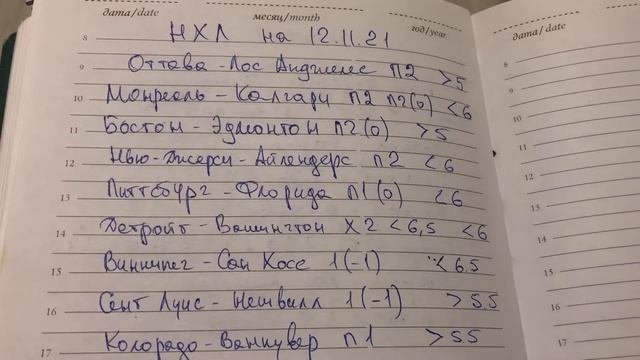 дата/date месяц/month год/year
8 НХЛ на 12.11.21
9 Оттава - Лос Анджелес п2 >5
10 Монреаль - Калгари п2 п2(0) <6
11 Бостон - Эдмонтон п2(0) >5
12 Нью-Джерси - Айлендерс п2 <6
13 Питтбург - Флорида п1(0) <6
14 Детройт - Вашингтон Х2 <6,5 <6
15 Виннипег - Сан Хосе 1(-1) <6.5
16 Сент Луис - Нешвилл 1(-1) >5.5
17 Колорадо - Ванкувер п1 >5.5
дата/date
8
9
10
11
12
13
14
15
16
17